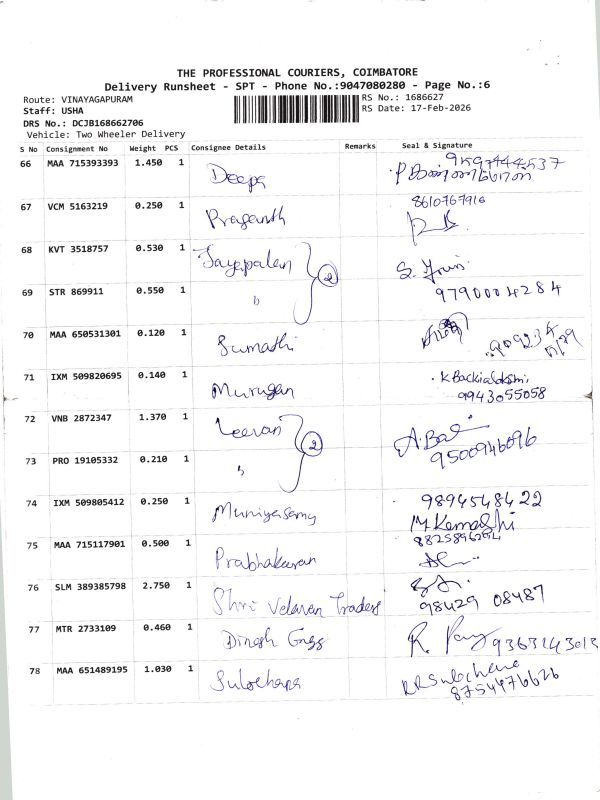 THE PROFESSIONAL COURIERS, COIMBATORE
Delivery Runsheet - SPT - Phone No.:9047080280 - Page No.:6
Route: VINAYAGAPURAM
RS No.: 1686627
Staff: USHA
RS Date: 17-Feb-2026
DRS No.: DCJB168662706
Vehicle: Two Wheeler Delivery
S No Consignment No Weight PCS Consignee Details Remarks Seal & Signature
66 MAA 715393393 1.450 1 Deepa
67 VCM 5163219 0.250 1 Prasanth 8610767916
68 KVT 3518757 0.530 1 Jayapalan 2
69 STR 869911 0.550 1 " 9790004284
70 MAA 650531301 0.120 1 Sumathi
71 IXM 509820695 0.140 1 Murugan K Backialakshmi
9943055058
72 VNB 2872347 1.370 1 2 A.Bal
73 PRO 19105332 0.210 1 " 9500946096
74 IXM 509805412 0.250 1 Muniyasamy 9894548422
75 MAA 715117901 0.500 1 Prabhakaran
76 SLM 389385798 2.750 1 Shri Velavan Traders
98429 08487
77 MTR 2733109 0.460 1 Dinesh R.
78 MAA 651489195 1.030 1 Sulochana RR Sulochana
8754976626